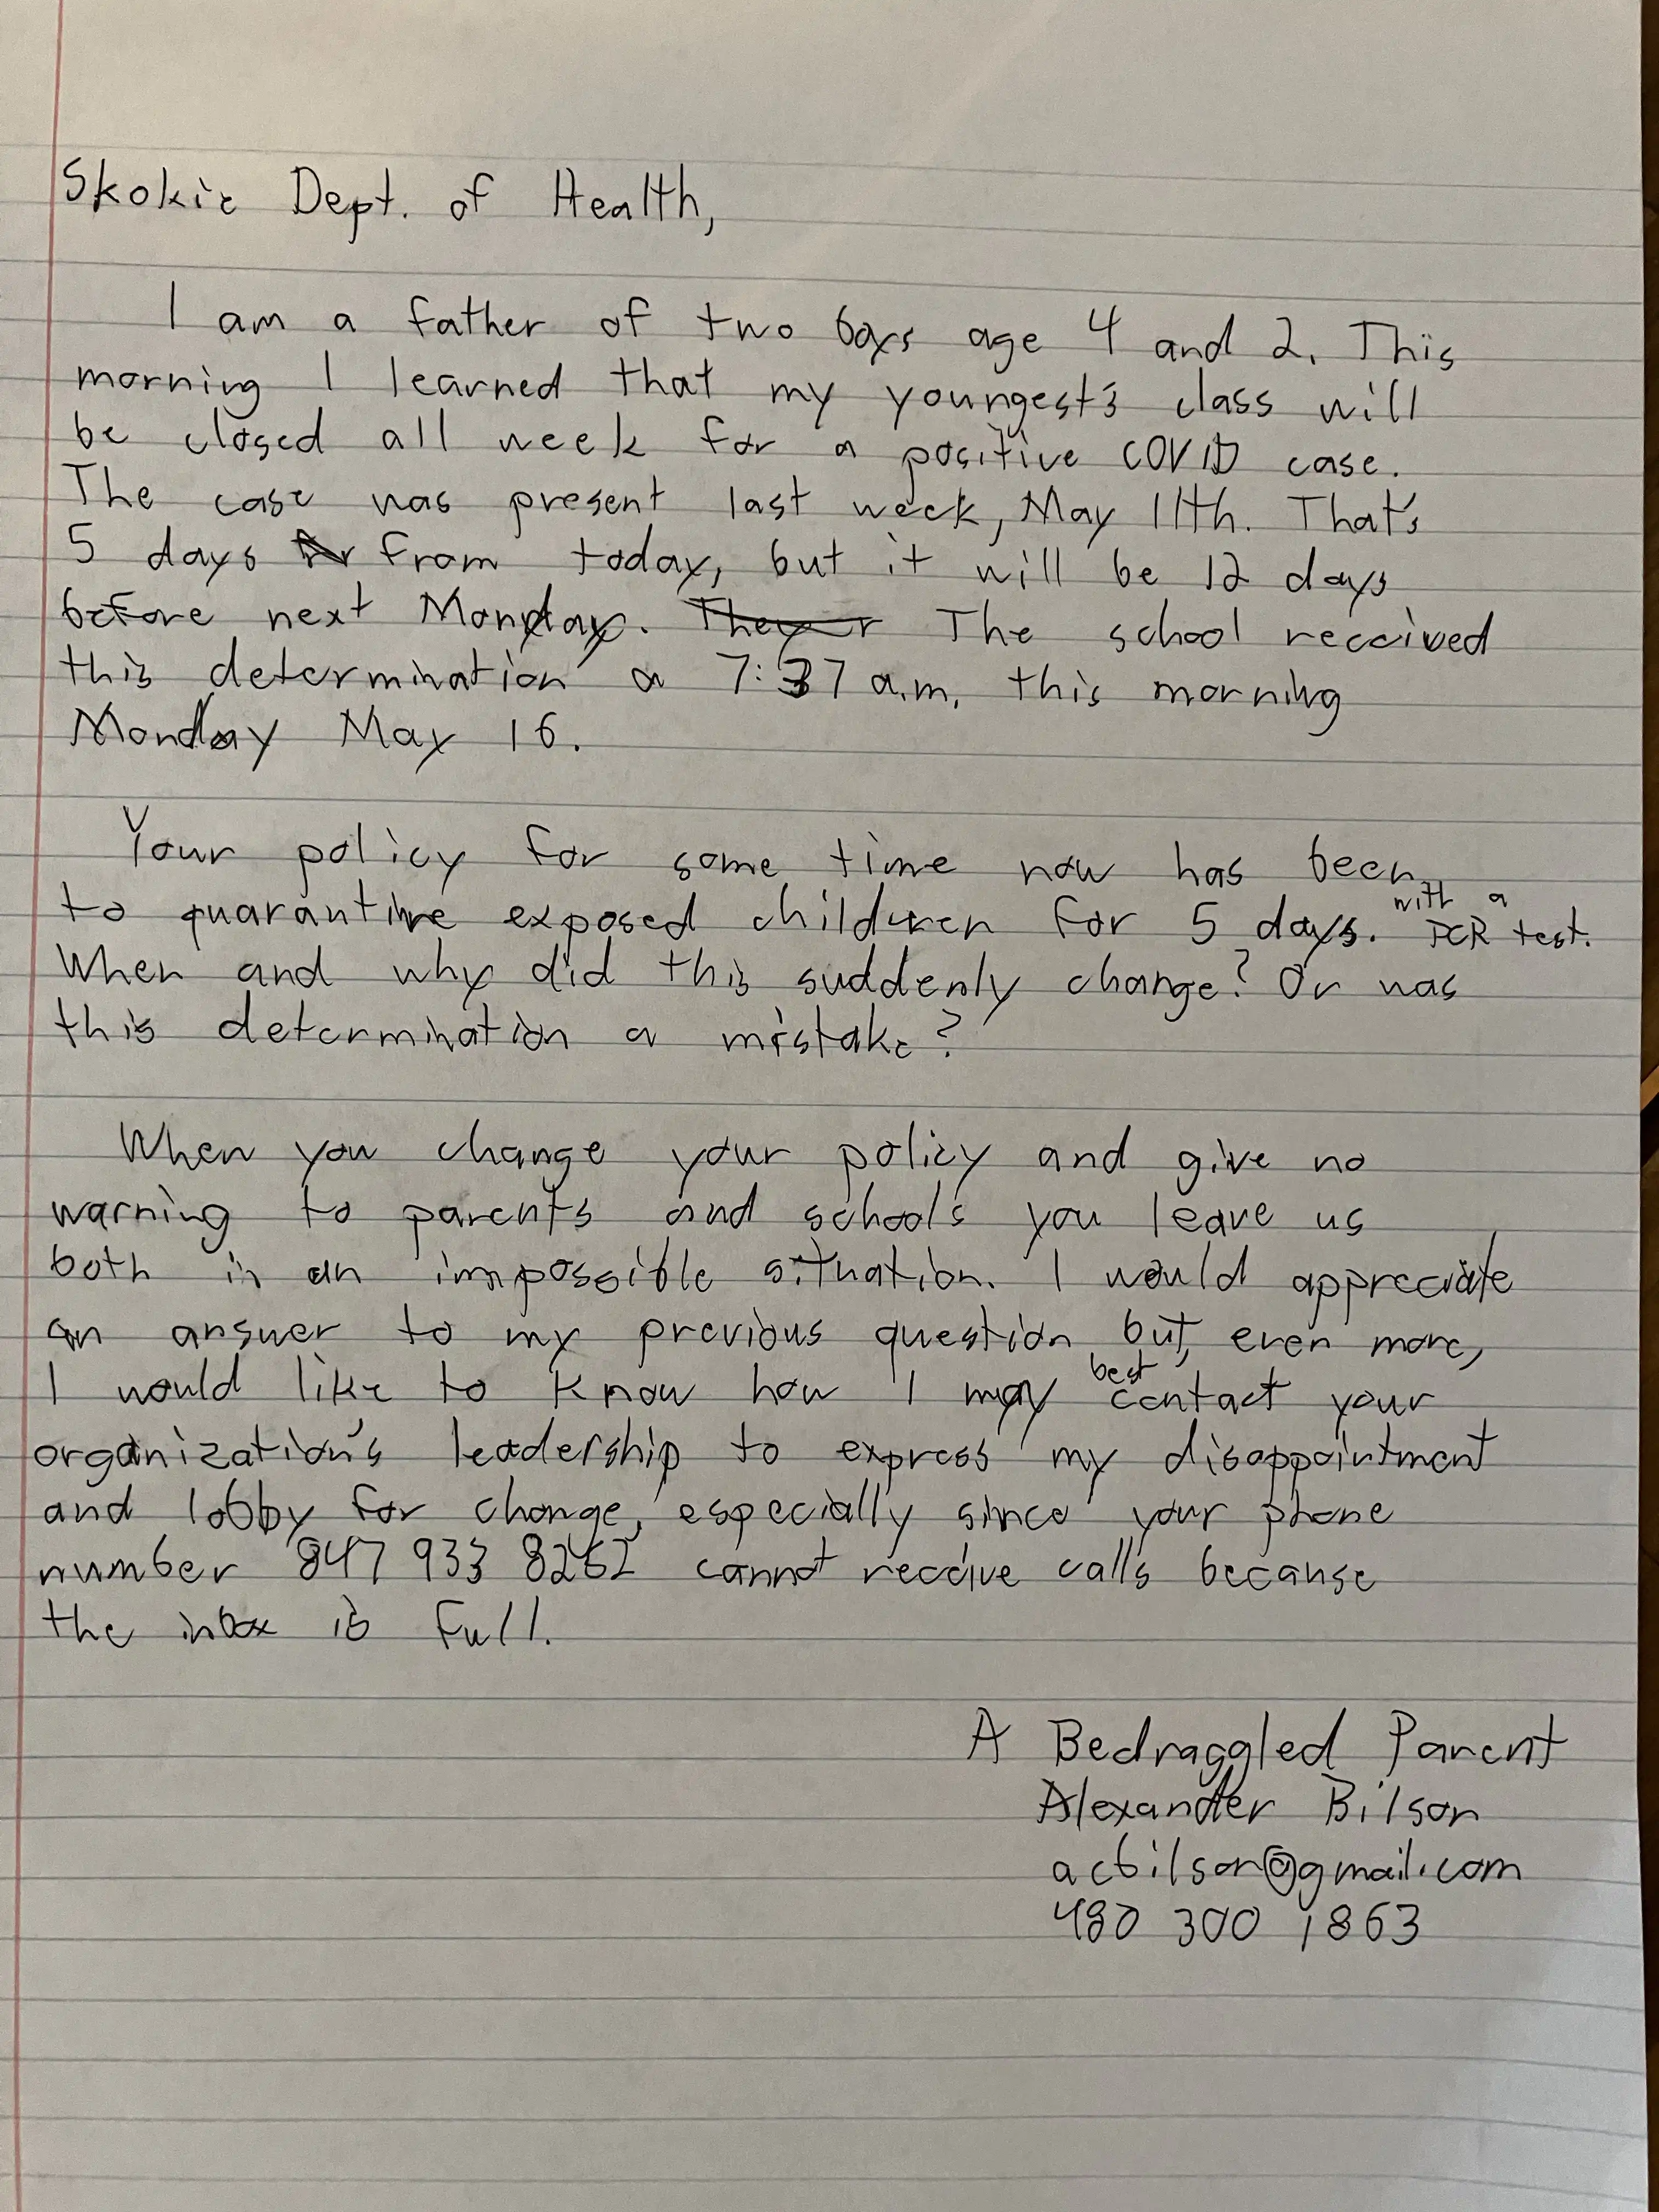 Skokie Dept. of Health,
I am a father of two boys age 4 and 2. This
morning I learned that my youngest's class will
be closed all week for a positive COVID case.
The case was present last week, May 11th. That's
5 days from today, but it will be 12 days
before next Monday. The school received
this determination a 7:37 a.m. this morning
Monday May 16.
Your policy for some time now has been
with a
to quarantine exposed children for 5 days. PCR test.
When and why did this suddenly change? Or was
this determination a mistake?
When you change your policy and give no
warning to parents and schools you leave us
both in an impossible situation. I would appreciate
an answer to my previous question but, even more,
best
I would like to know how I may contact your
organization's leadership to express my disappointment
and lobby for change, especially since your phone
number 847 933 8252 cannot receive calls because
the inbox is full.
A Bedraggled Parent
Alexander Bilson
acbilson@gmail.com
480 300 1863